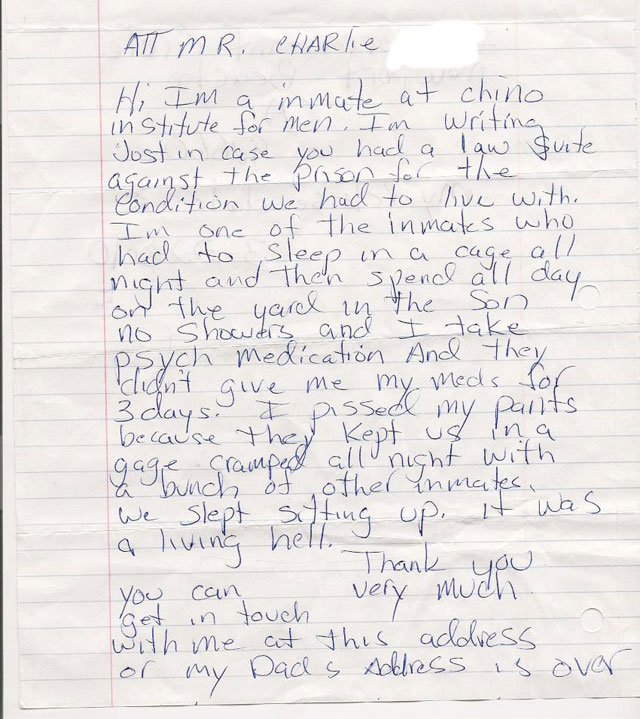 ATT MR. CHARlie
Hi Im a inmate at chino
institute for men. I'm writing
Just in case you had a law suite
against the prison for the
condition we had to live with.
I'm one of the inmates who
had to sleep in a cage all
night and then spend all day
on the yard in the Son
no showers and I take
psych medication And they
didn't give me my meds for
3 days. I pissed my pants
because they kept us in a
gage cramped all night with
a bunch of other inmates.
we slept sitting up. it was
a living hell.
Thank you
very much
you can
get in touch
with me at this address
or my Dads Address is over